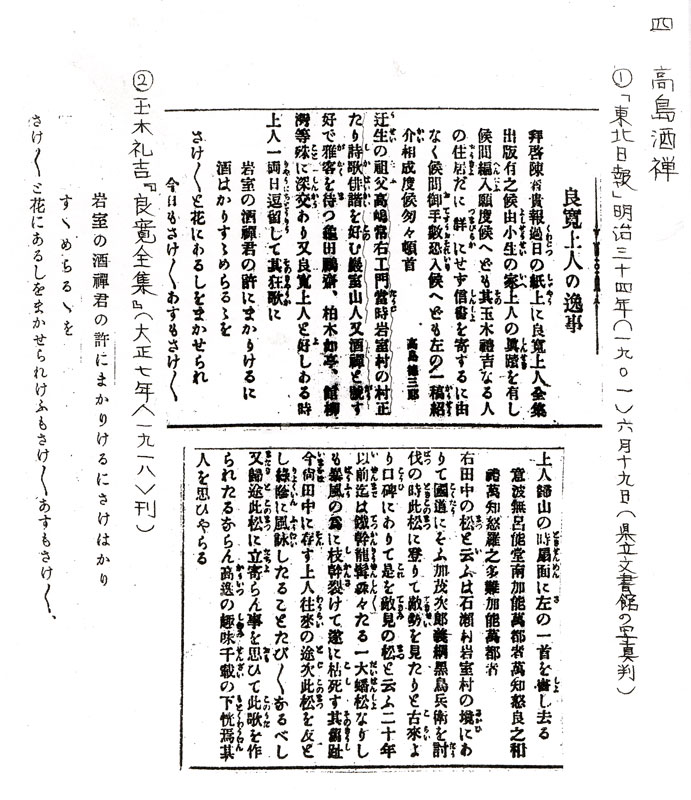 四 高島酒禅
①「東北日報」明治三十四年(一九〇一)六月十九日(県立文書館の写真判)
良寛上人の逸事
拜啓陳者貴報過日の紙上に良寛上人全集
出版有之候由小生の家上人の眞蹟を有し
候間編入願度候へども其玉木禮吉なる人
の住居だに詳にせず信書を寄するに由
なく候間御手數恐入候へども左の一稿紹
介相成度候匆々頓首
高島 三郎
迂生の祖父高嶋常右エ門當時岩室村の村正
たり詩歌俳諧を好む巖室山人又酒禪と號す
好で雅客を待つ龜田鵬齋、柏木如亭、館柳
灣等殊に深交あり又良寛上人と好しある時
上人一両日逗留して其狂歌に
岩室の酒禪君の許にまかりけるに
酒はかりすゝめらるゝを
さけ〱と花にあるしをまかせられ
今日もさけ〱あすもさけ〱
上人歸山の時扇面に左の一首を書し去る
意波無呂能堂南加能萬都者萬知怒良之和
禮萬知怒羅之多難加能萬都者
右田中の松と云ふは石瀬村岩室村の境にあ
りて國道にそふ加茂次郎義綱黒鳥兵衛を討
伐の時此松に登りて敵勢を見たりと古來よ
り口碑にありて是を敵見の松と云ふ二十年
以前迄は鐵幹龍髯森々たる一大蟠松なりし
も暴風の爲に枝幹裂けて遂に枯死す其舊趾
今尚田中に存す上人往來の途次此松を友と
し綠陰に風詠したることたび〱あるべし
又歸途此松に立寄らん事を思ひて此歌を作
られたるならん高逸の趣味千載の下恍焉其
人を思ひやらる
②玉木礼吉『良寛全集』(大正七年〈一九一八〉刊)
岩室の酒禪君の許にまかりけるにさけはかり
すゝめらるゝを
さけ〱と花にあるしをまかせられけふもさけ〱あすもさけ〱、